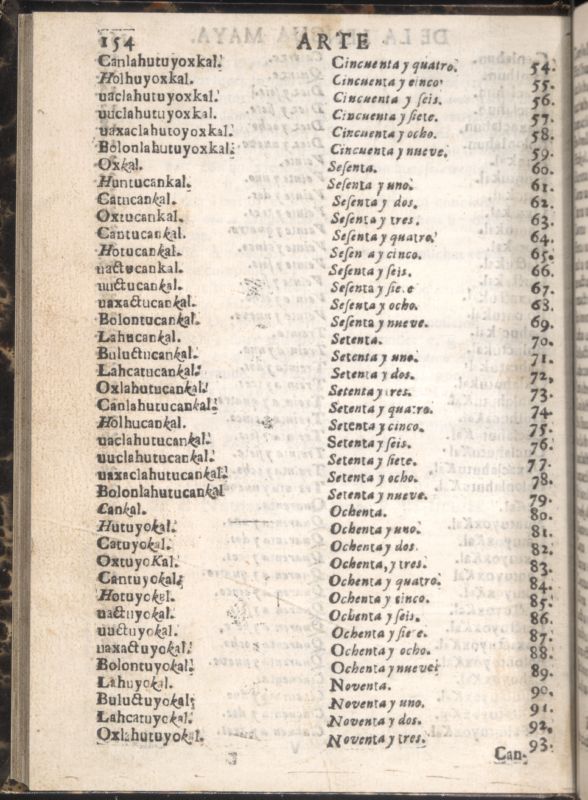 154 ARTE
Canlahutuyoxkal. Cincuenta y quatro. 54.
Holhuyoxkal. Cincuenta y cinco 55.
uaclahutuyoxkal. Cincuenta y seis. 56.
uuclahutuyoxkal. Cincuenta y siete. 57.
uaxaclahutoyoxkal. Cincuenta y ocho. 58.
Bolonlahutuyoxkal. Cincuenta y nueve. 59.
Oxkal. Sesenta. 60.
Huntucankal. Sesenta y uno. 61.
Catucankal. Sesenta y dos. 62.
Oxtucankal. Sesenta y tres. 63.
Cantucankal. Sesenta y quatro. 64.
Hotucankal. Sesen a y cinco. 65.
uactucankal. Sesenta y seis. 66.
uuctucankal. Sesenta y sie e 67.
uaxactucankal. Sesenta y ocho. 68.
Bolontucankal. Sesenta y nueve. 69.
Lahucankal. Setenta. 70.
Buluctucankal. Setenta y uno. 71.
Lahcatucankal. Setenta y dos. 72,
Oxlahutucankal. Setenta y tres. 73.
Canlahutucankal. Setenta y quatro. 74
Holhucankal. Setenta y cinco. 75.
uaclahutucankal. Setenta y seis. 76.
uuclahutucankal. Setenta y siete. 77.
uaxaclahutucankal. Setenta y ocho. 78.
Bolonlahutucankal Setenta y nueve. 79.
Cankal. Ochenta. 80.
Hutuyokal. Ochenta y uno. 81.
Catuyokal. Ochenta y dos. 82.
OxtuyoKal. Ochenta, y tres. 83.
Cantuyokal; Ochenta y quatro. 84.
Hotuyokal. Ochenta y cinco. 85.
uactuyokal. Ochenta y seis. 86.
uuctuyokal. Ochenta y sie e. 87.
uaxactuyokal. Ochenta y ocho. 88.
Bolontuyokal. Ochenta y nueve: 89.
Lahuyokal. Noventa. 90,
Buluctuyokal; Noventa y uno. 91.
Lahcatuyokal. Noventa y dos. 92,
Oxlahutuyokal. Noventa y tres. 93.
Can-